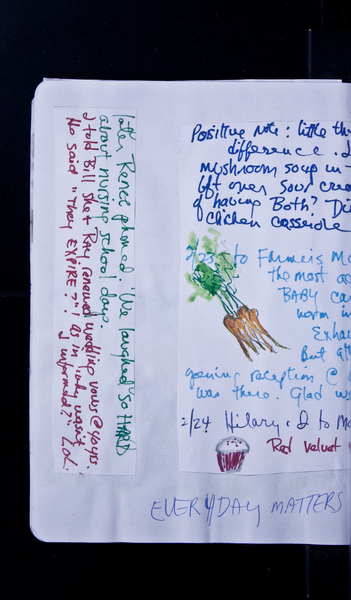 later Renee phoned. We laughed so HARD
about nursing school days.
I told Bill she & Ray renewed wedding vows @ 40 yrs.
He said "They EXPIRE?"! as in "why wasn't
I informed?" LOL
Positive Note: little th
difference. I
mushroom soup in
left over sour crea
of having Both? Di
chicken casserole
2/23: to Farmers Ma
the most ad
BABY ca
worm in
Exhau
But aft
opening reception @
was there. Glad w
2/24 Hilary & I to Mo
Red velvet
EVERYDAY MATTERS